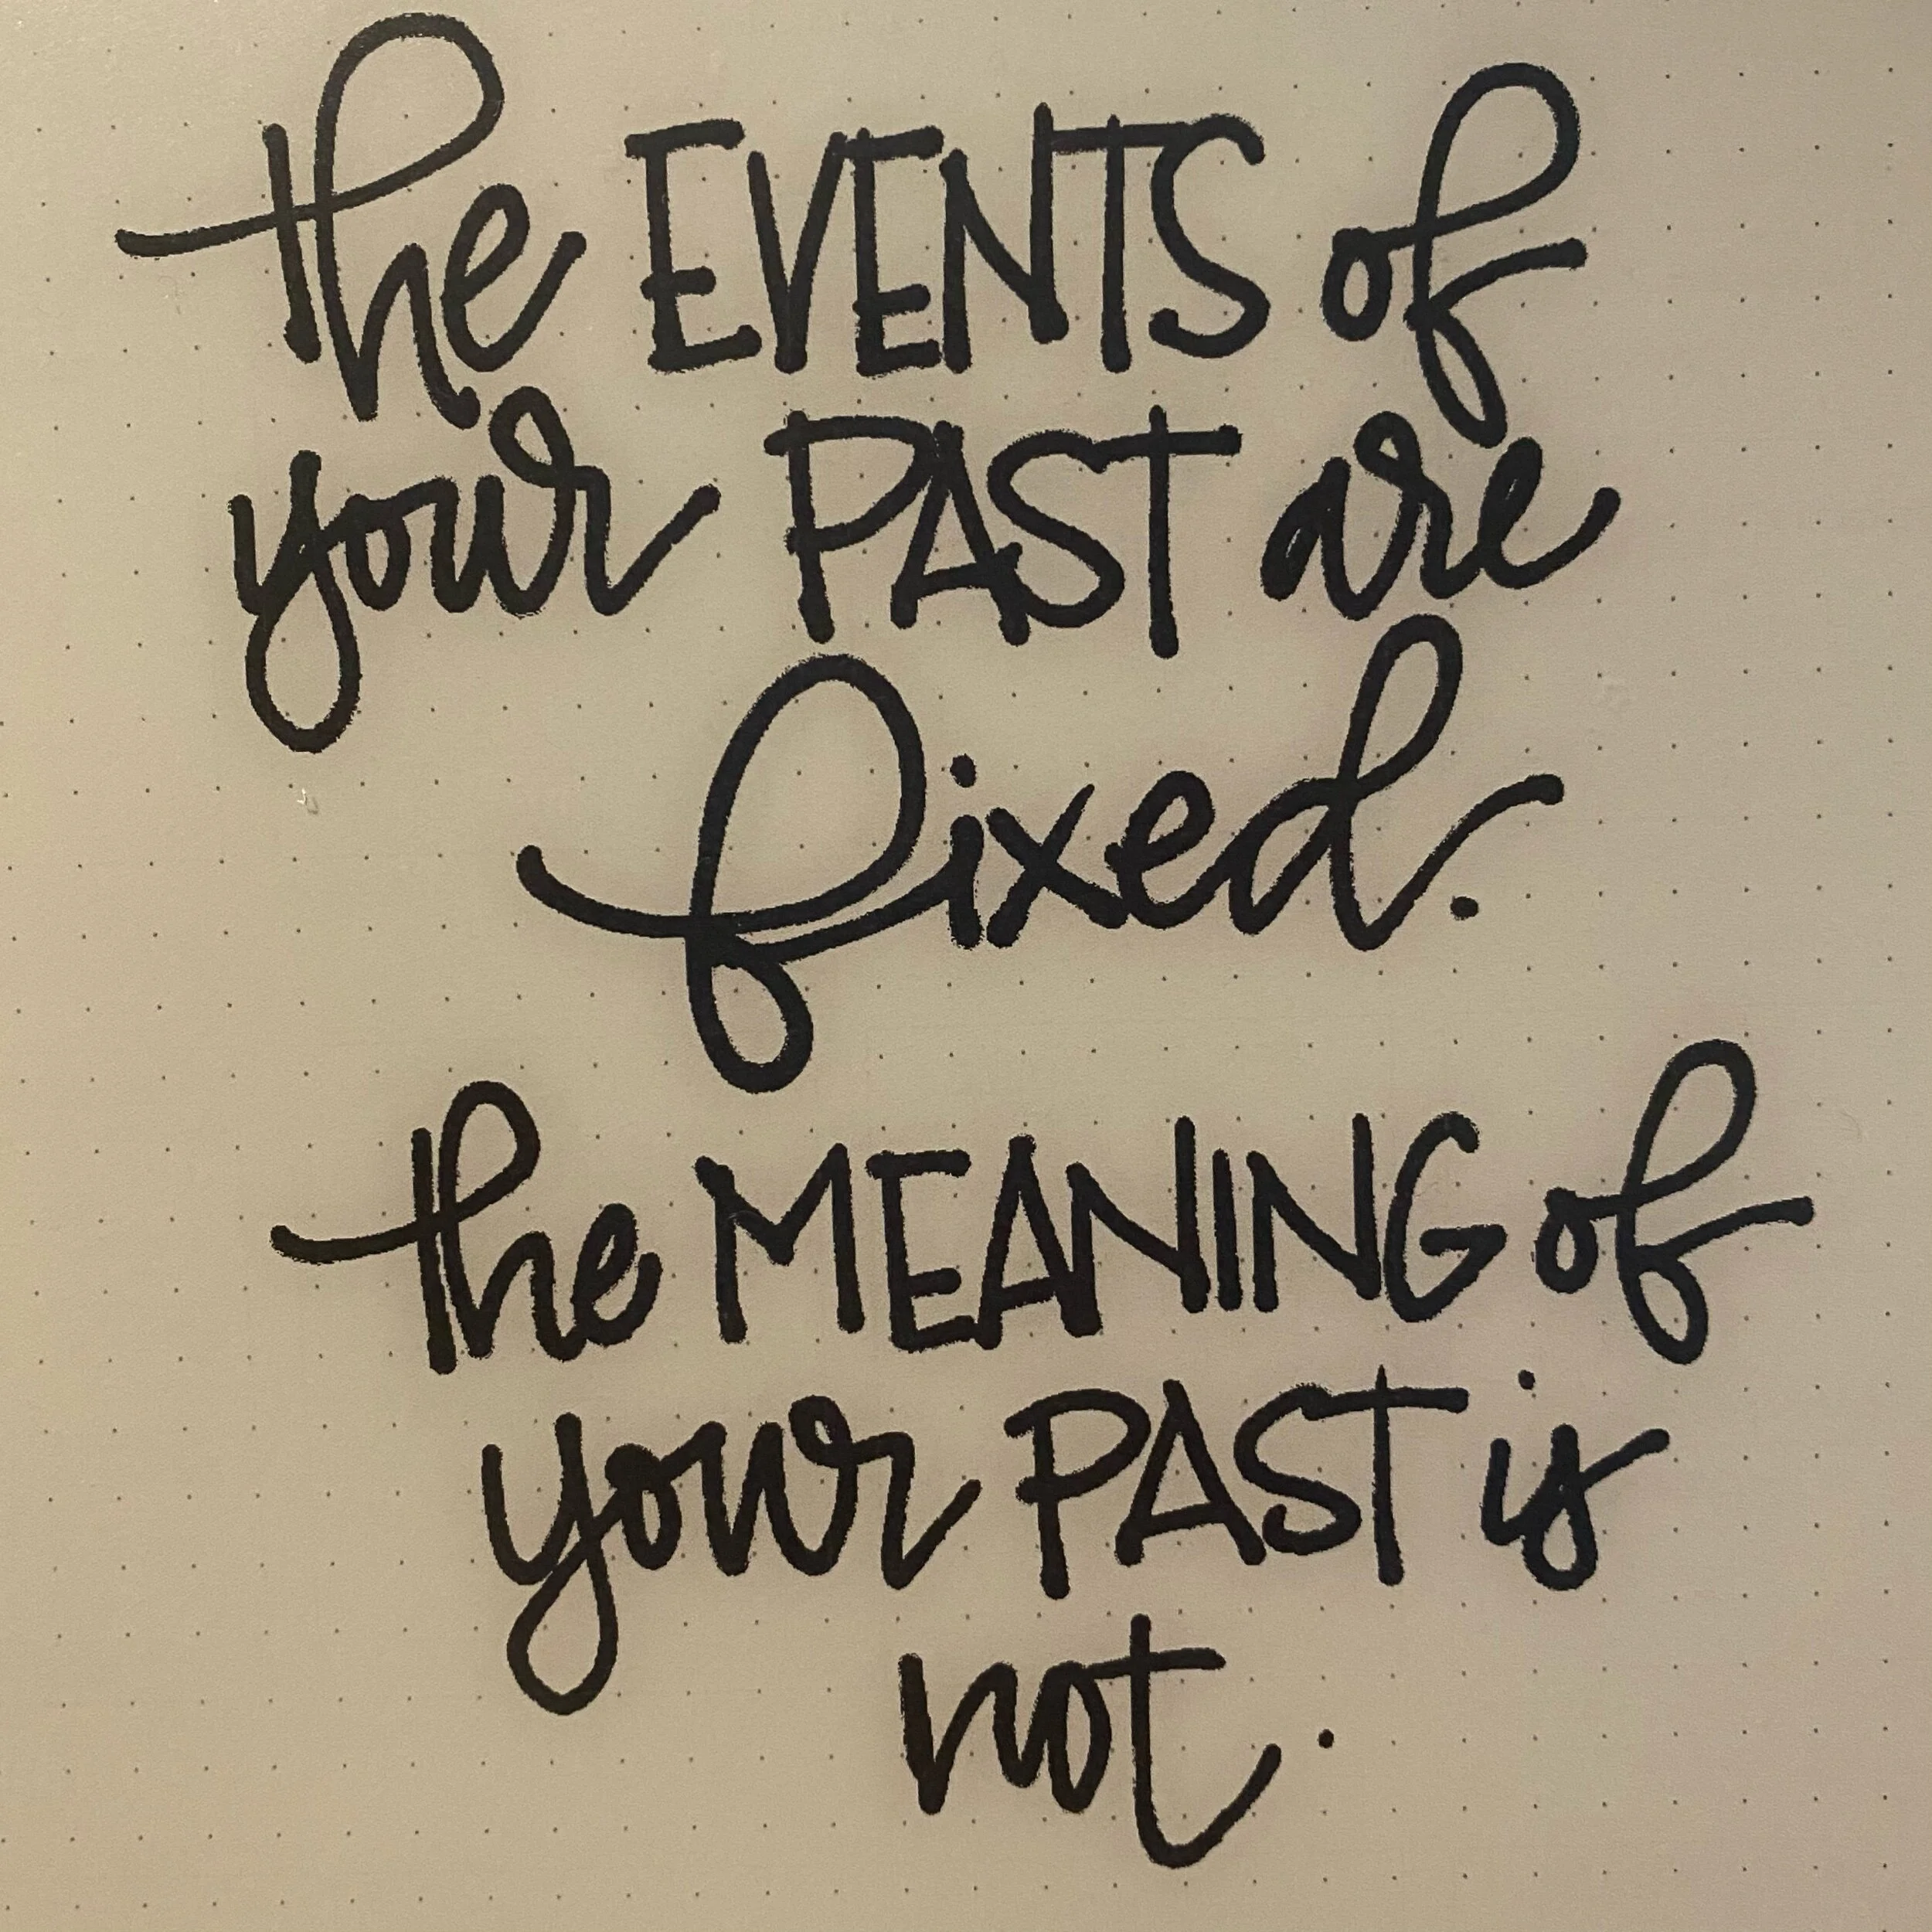 the EVENTS of
your PAST are
fixed.
the MEANING of
your PAST is
not.